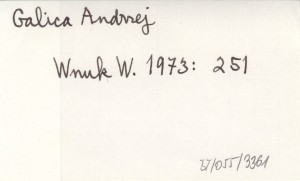 Galica Andrzej
Wnuk W. 1973: 251
27/055/3361